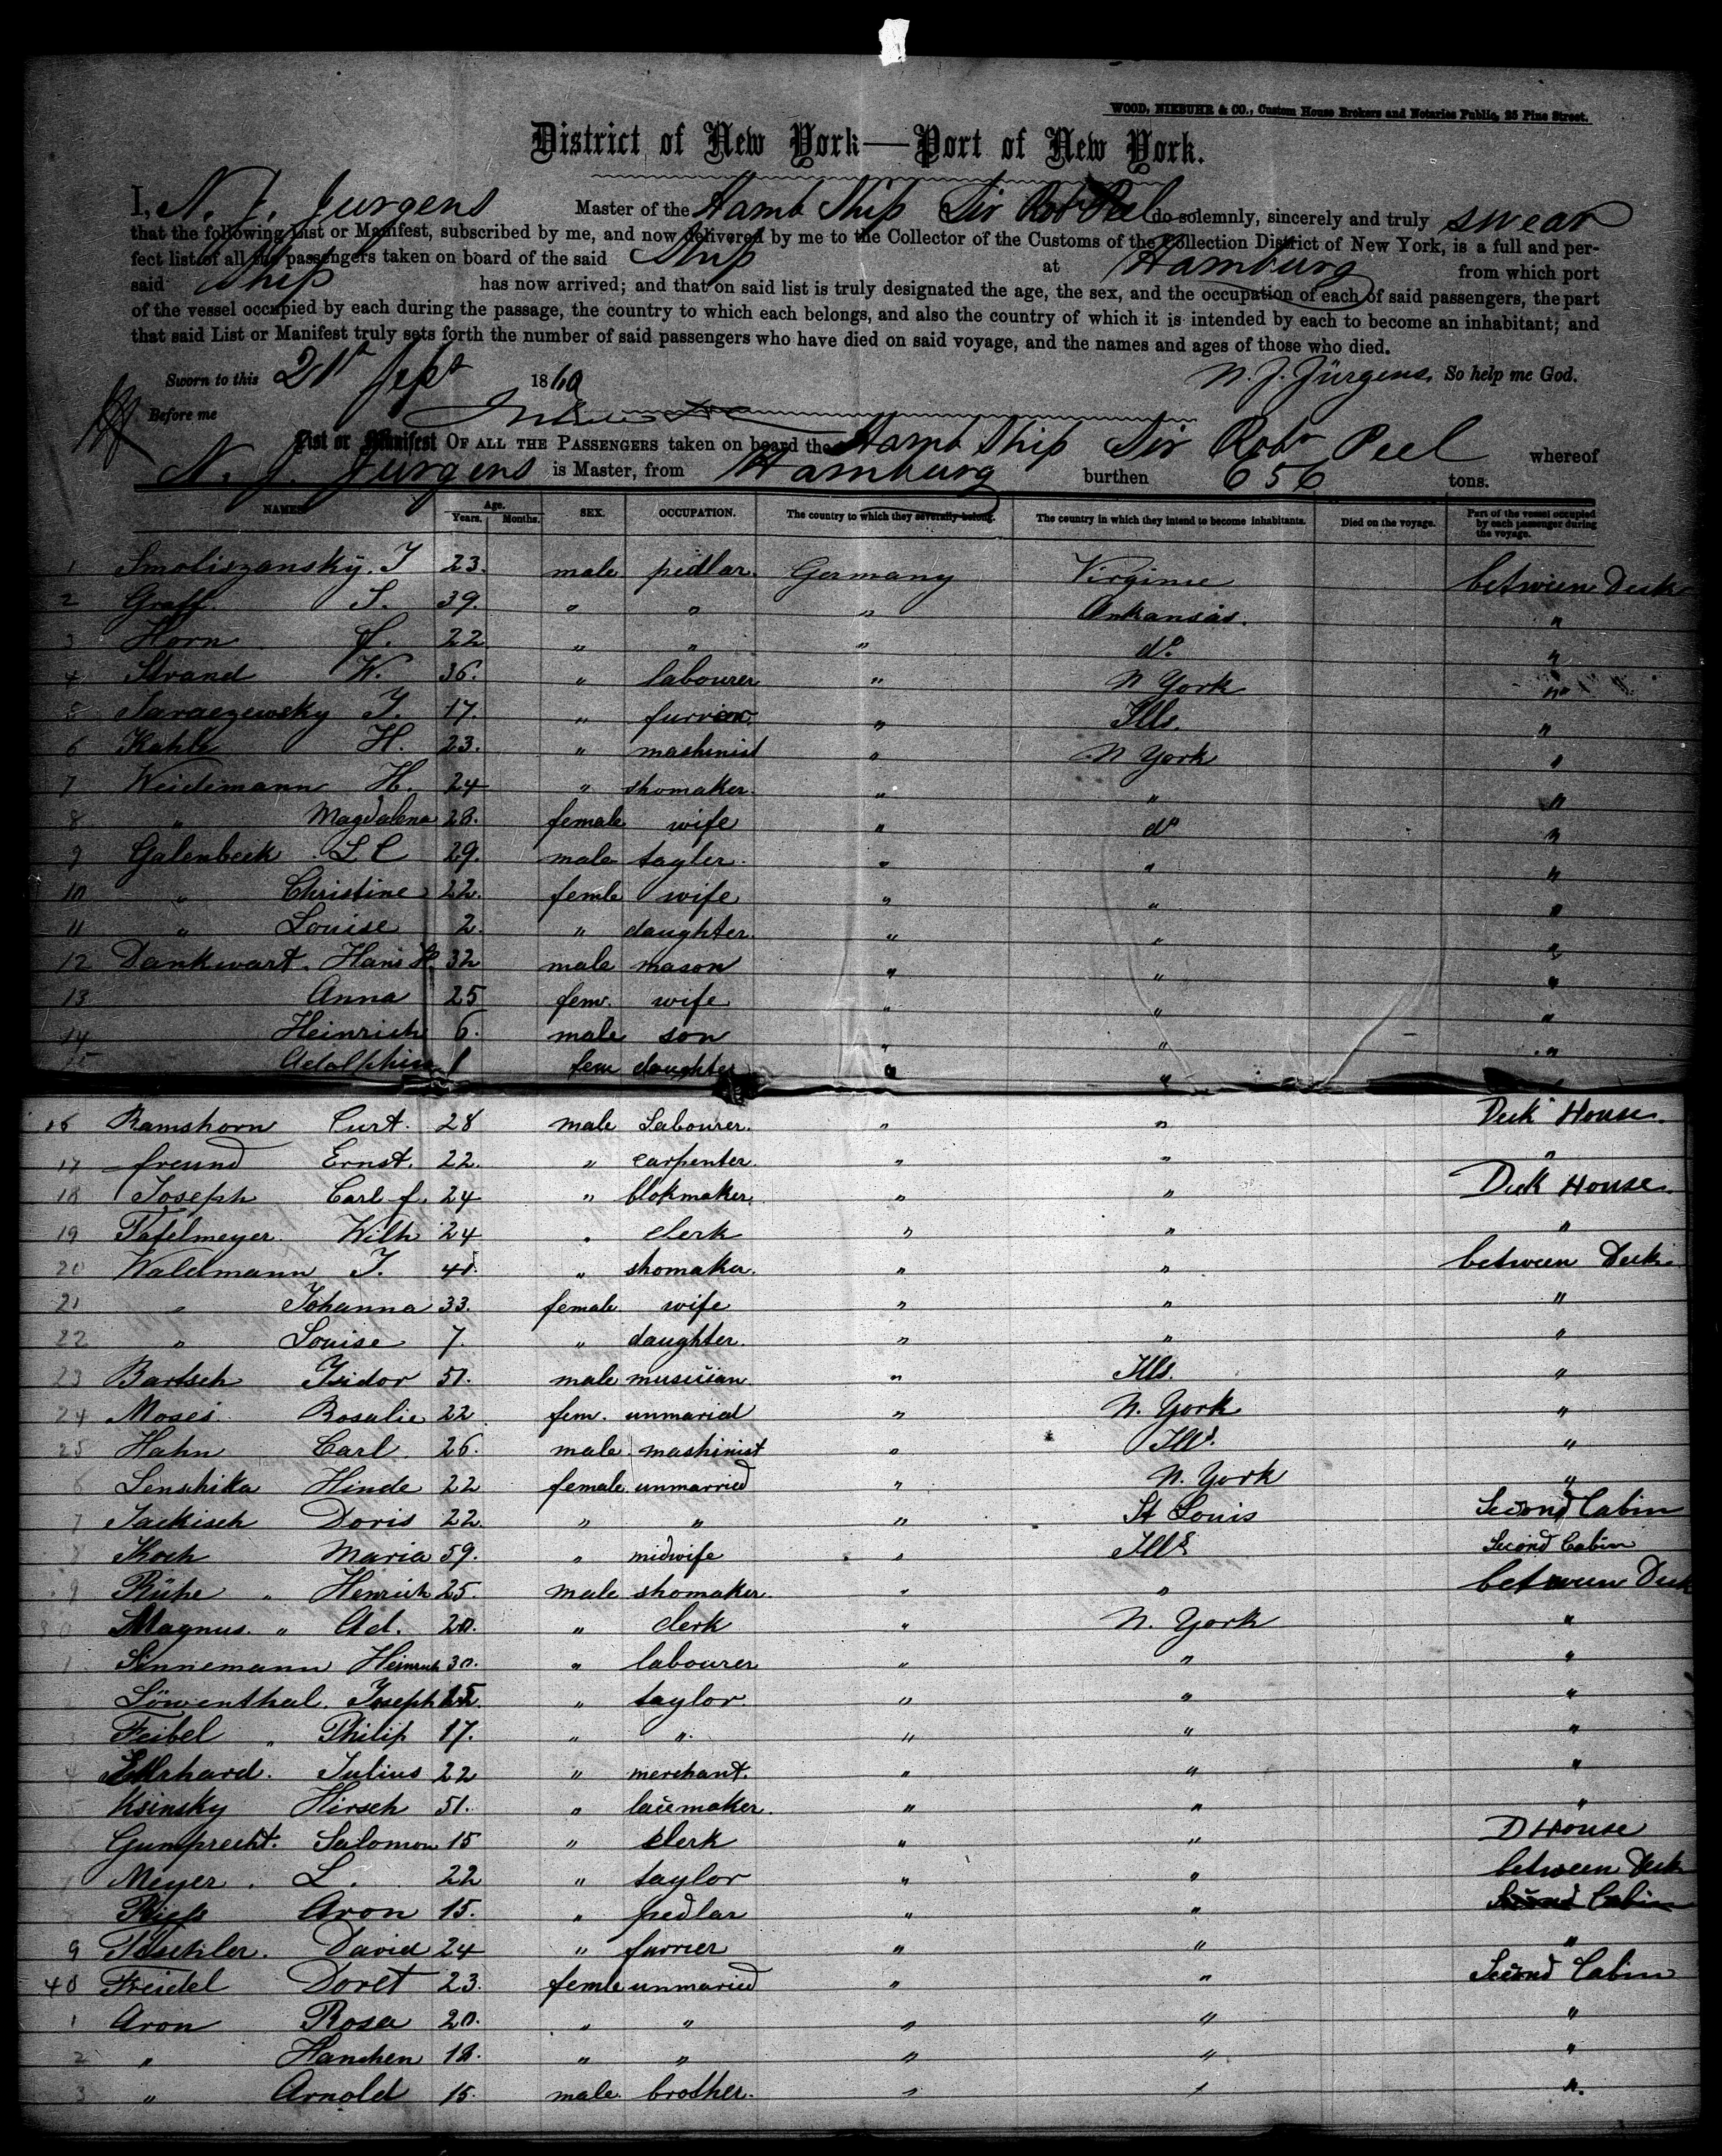 WOOD, NIEBUHR & CO., Custom House Brokers and Notaries Public, 25 Pine Street.
District of New York—Port of New York.
I, N. J. Jurgens Master of the Hamb Ship Sir Robt Peel do solemnly, sincerely and truly swear
that the following List or Manifest, subscribed by me, and now delivered by me to the Collector of the Customs of the Collection District of New York, is a full and per-
fect list of all the passengers taken on board of the said Ship at Hamburg from which port
said Ship has now arrived; and that on said list is truly designated the age, the sex, and the occupation of each of said passengers, the part
of the vessel occupied by each during the passage, the country to which each belongs, and also the country of which it is intended by each to become an inhabitant; and
that said List or Manifest truly sets forth the number of said passengers who have died on said voyage, and the names and ages of those who died.
Sworn to this 21st Sept 1860 N. J. Jürgens, So help me God.
Before me
List or Manifest OF ALL THE PASSENGERS taken on board the Hamb Ship Sir Robt Peel whereof
N. J. Jurgens is Master, from Hamburg burthen 656 tons.
NAMES. Age. Years. Months. SEX. OCCUPATION. The country to which they severally belong. The country in which they intend to become inhabitants. Died on the voyage. Part of the vessel occupied by each passenger during the voyage.
1 Smoliszansky. J 23. male pedlar. Germany Virginie between Deck
2 Graff. S. 39. " " " Arkansas. "
3 Horn 22 " " " do. "
4 Strand W. 36. " labourer " N York "
5 Saraczewsky J. 17. " furrier. " Ills. "
6 Kahle H. 23. " mashinist " N York "
7 Weidemann H. 24 " shomaker. " " "
8 " Magdalena 28. female wife " do "
9 Galenbeck L C 29. male tayler. " " "
10 " Christine 22. femle wife " " "
11 " Louise 2. " daughter. " " "
12 Dankwart. Hans 32 male mason " " "
13 Anna 25 fem. wife " " "
14 Heinrich 6. male son " " "
15 Adolphine 1 fem daughter " "
16 Ramshorn Curt. 28 male Labourer. " " Deck House.
17 freund Ernst. 22. " carpenter. " " "
18 Joseph Carl f. 24 " blokmaker. " " Deck House.
19 Tafelmeyer. Wilh 24 " clerk " " "
20 Waldmann J. 40. " shomaker. " " between Deck.
21 " Johanna 33. female wife " " "
22 " Louise 7. " daughter. " " "
23 Bartsch Isidor 51. male musician. " Ills. "
24 Moses Rosalie 22 fem. unmaried " N. York "
25 Hahn Carl. 26. male mashinist " Ills. "
6 Lenschika Hinde 22 female unmarried " N. York "
7 Jackisch Doris 22. " " " St Louis Second Cabin
8 Koch Maria 59. " midwife " Ills Second Cabin
9 Rühe " Henrich 25. male shomaker. " " between Deck
30 Magnus. " Ad. 20. " clerk " N. York "
1 Sinnemann Heinrich 30. " labourer " " "
2 Löwenthal. Joseph " taylor. " " "
3 Feibel " Philip 17. " " " " "
4 hard. Julius 22 " merchant. " " "
5 Ksinsky Hirsch 51. " lacemaker. " " "
6 Gumprecht. Salomon 15 " clerk " " D House
7 Meyer. L. 22 " taylor " " between Deck
8 Rieß Aron 15. " pedlar " " Second Cabin
9 David 24 " furrier " " "
40 Freidel Doret 23. femle unmaried " " Second Cabin
1 Aron Rosa 20. " " " " "
2 " Hanchen 18. " " " " "
3 " Arnold 15. male. brother. " " "